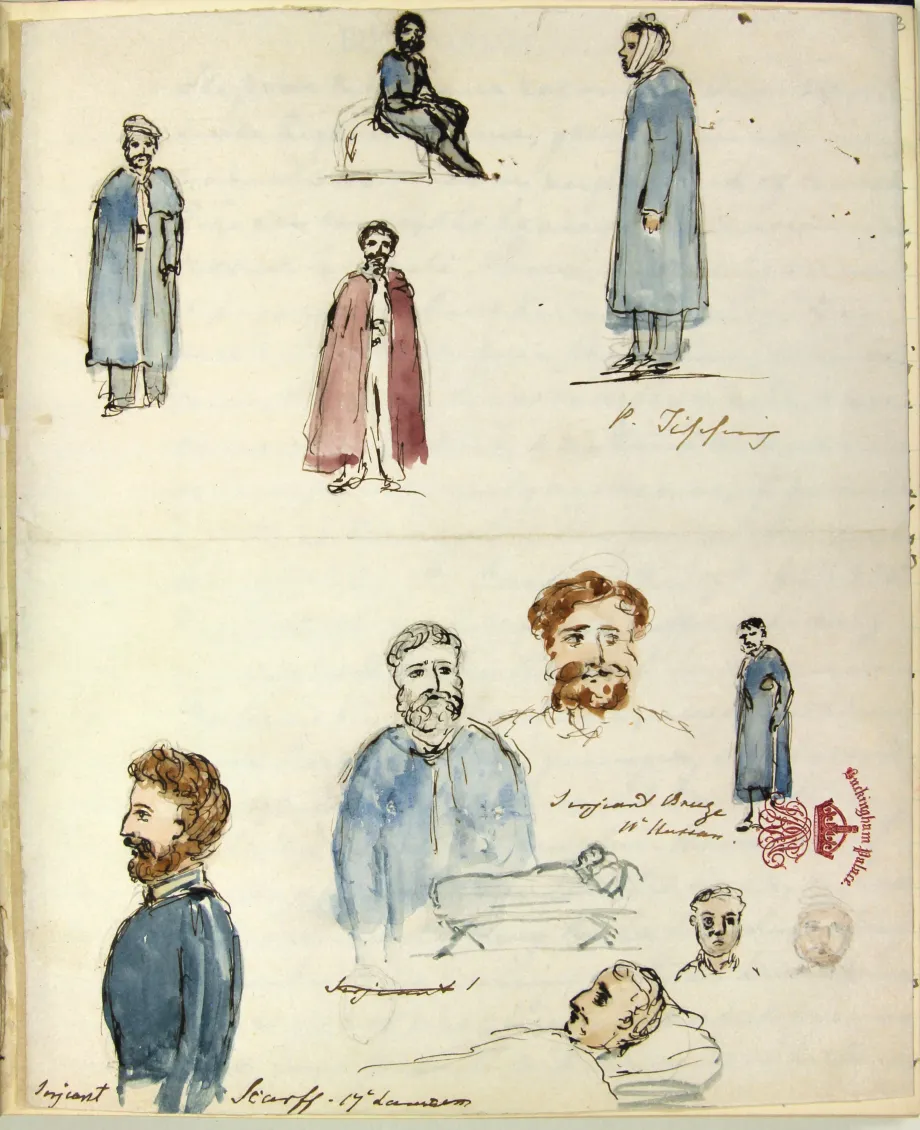 P. Tipping
Serjeant Breeze
11th Hussar
Buckingham Palace.
Serjeant
Serjeant Scarff - 17th Lancers